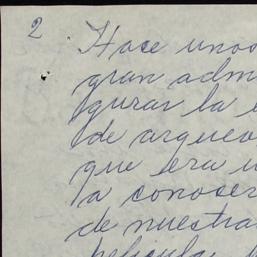 2 Hace unos
gran adm
gurar la e
de arqueo
que era u
a conocer
de nuestra
película